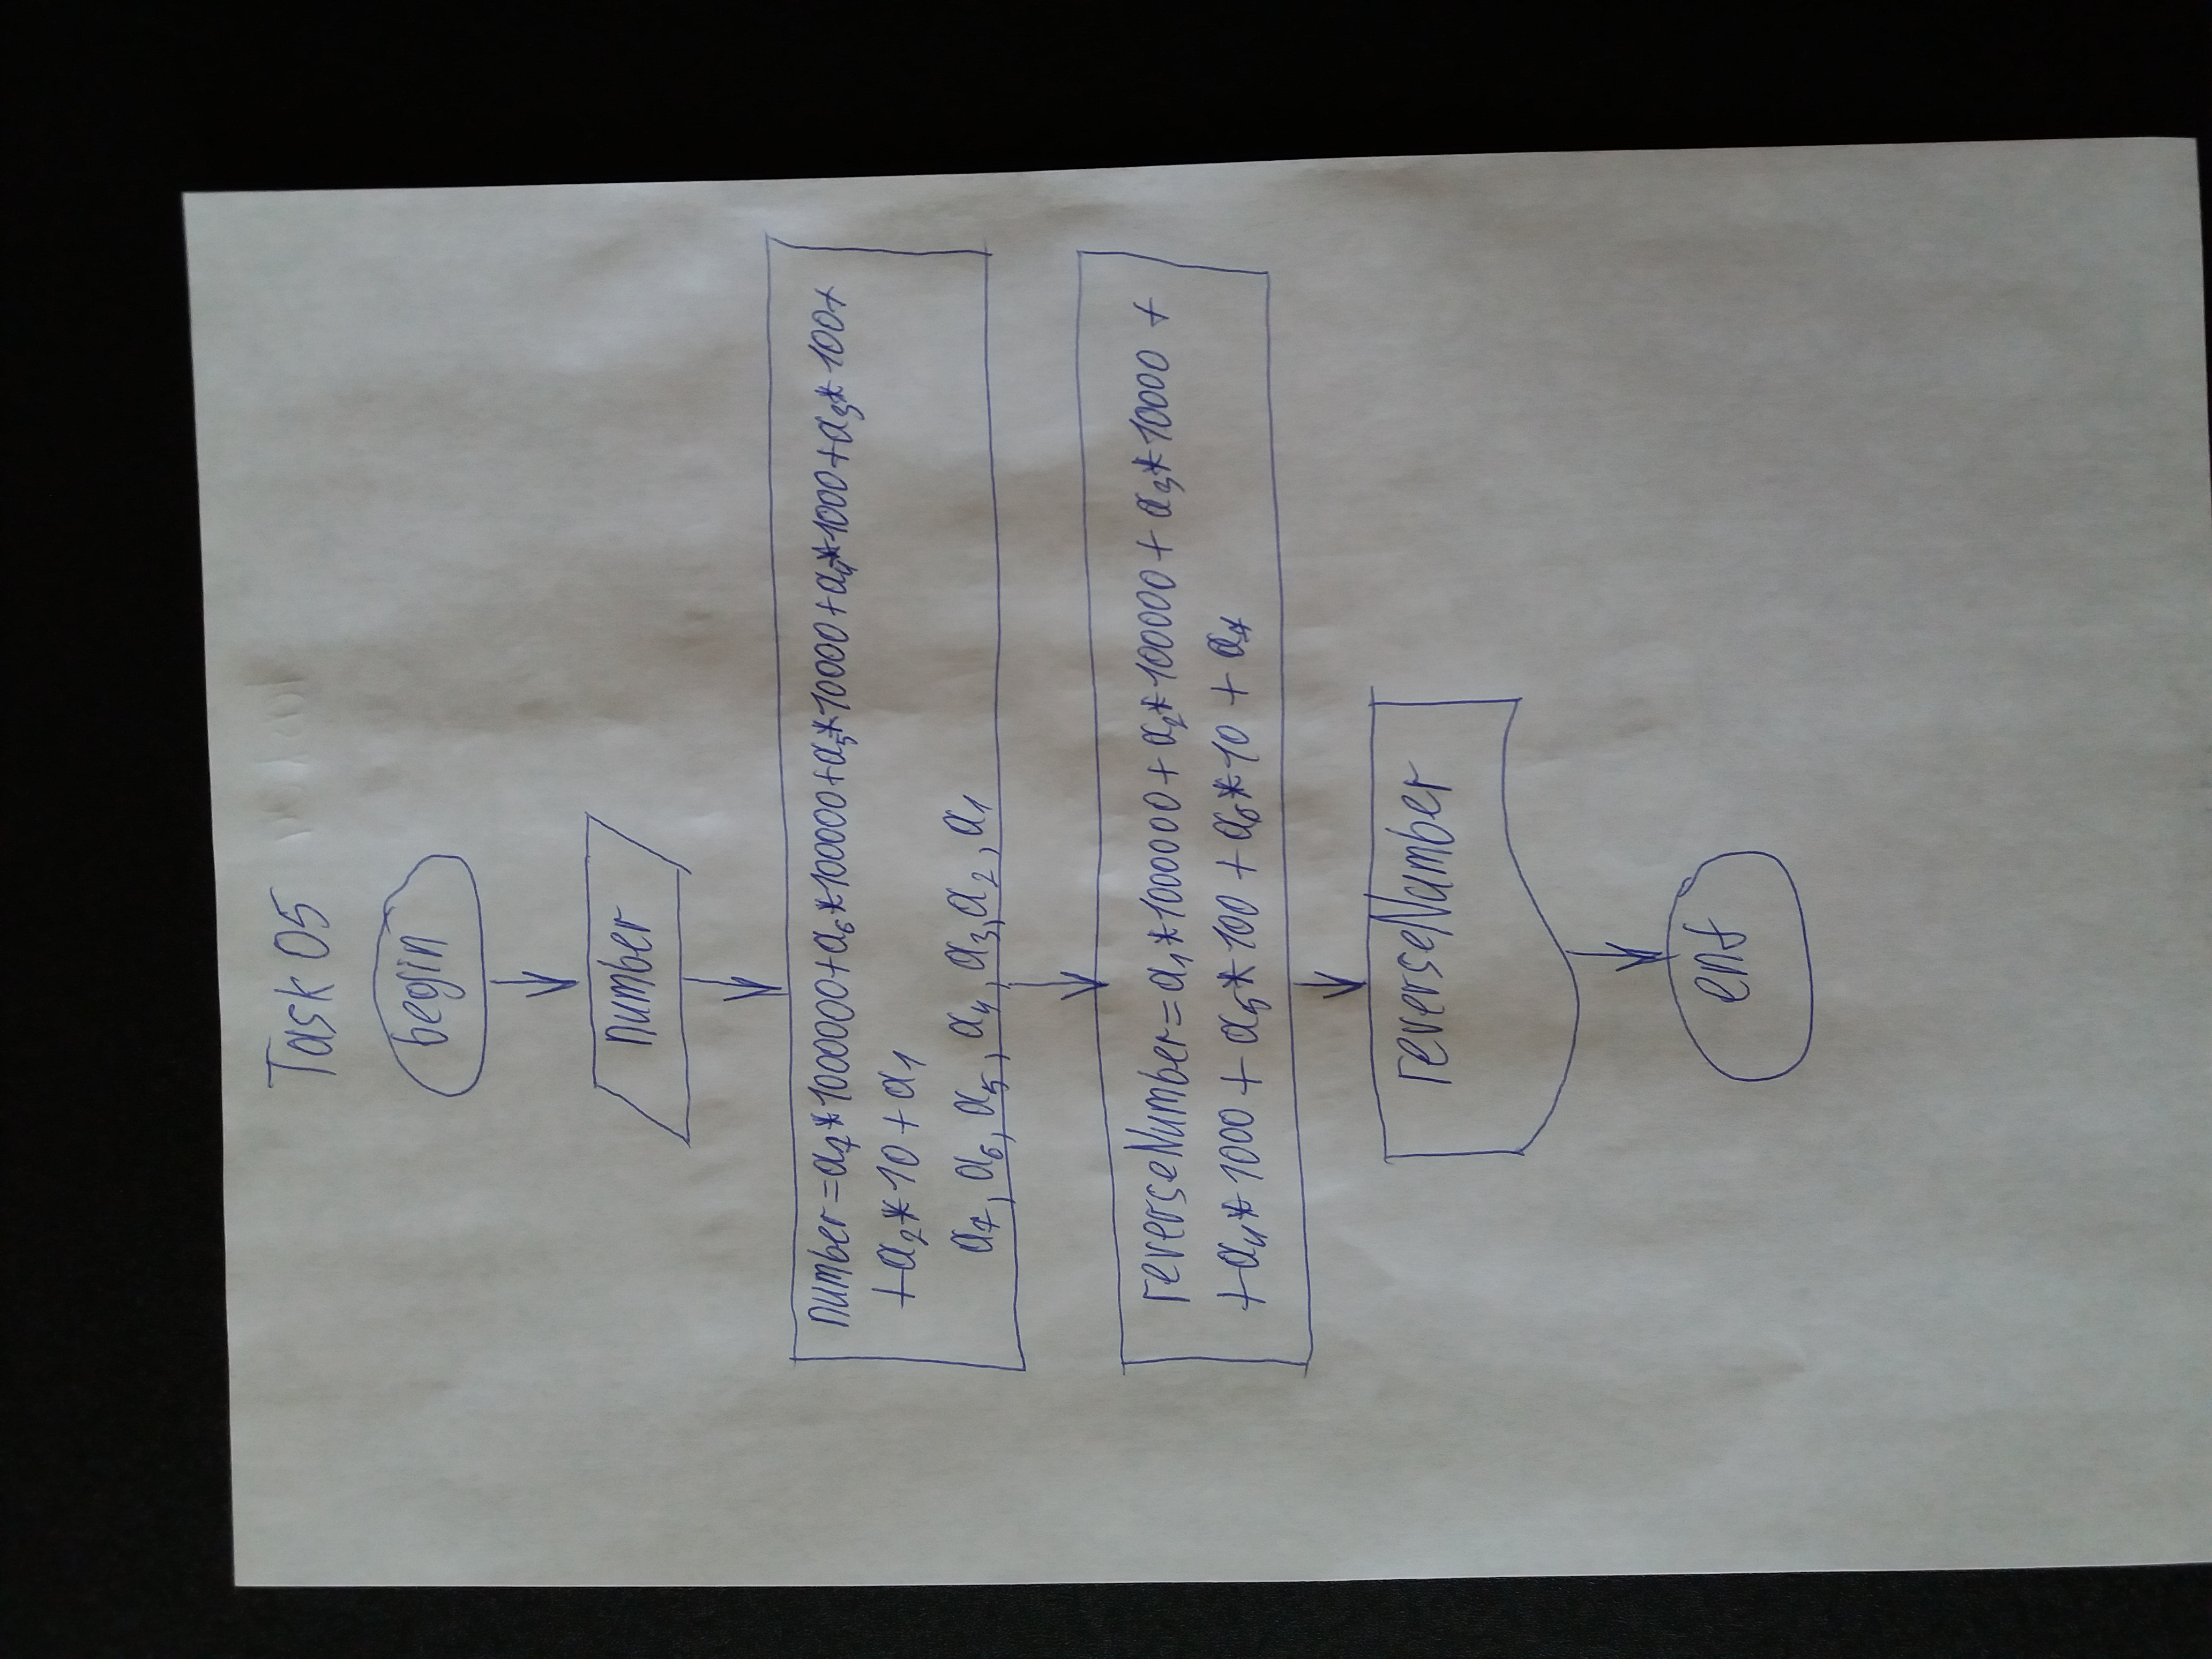 Task 05
begin
number
number=a₇*1000000+a₆*100000+a₅*10000+a₄*1000+a₃*100+
+a₂*10+a₁
a₇, a₆, a₅, a₄, a₃, a₂, a₁
reverseNumber=a₁*1000000+a₂*100000+a₃*10000+
+a₄*1000+a₅*100+a₆*10+a₇
reverseNumber
end